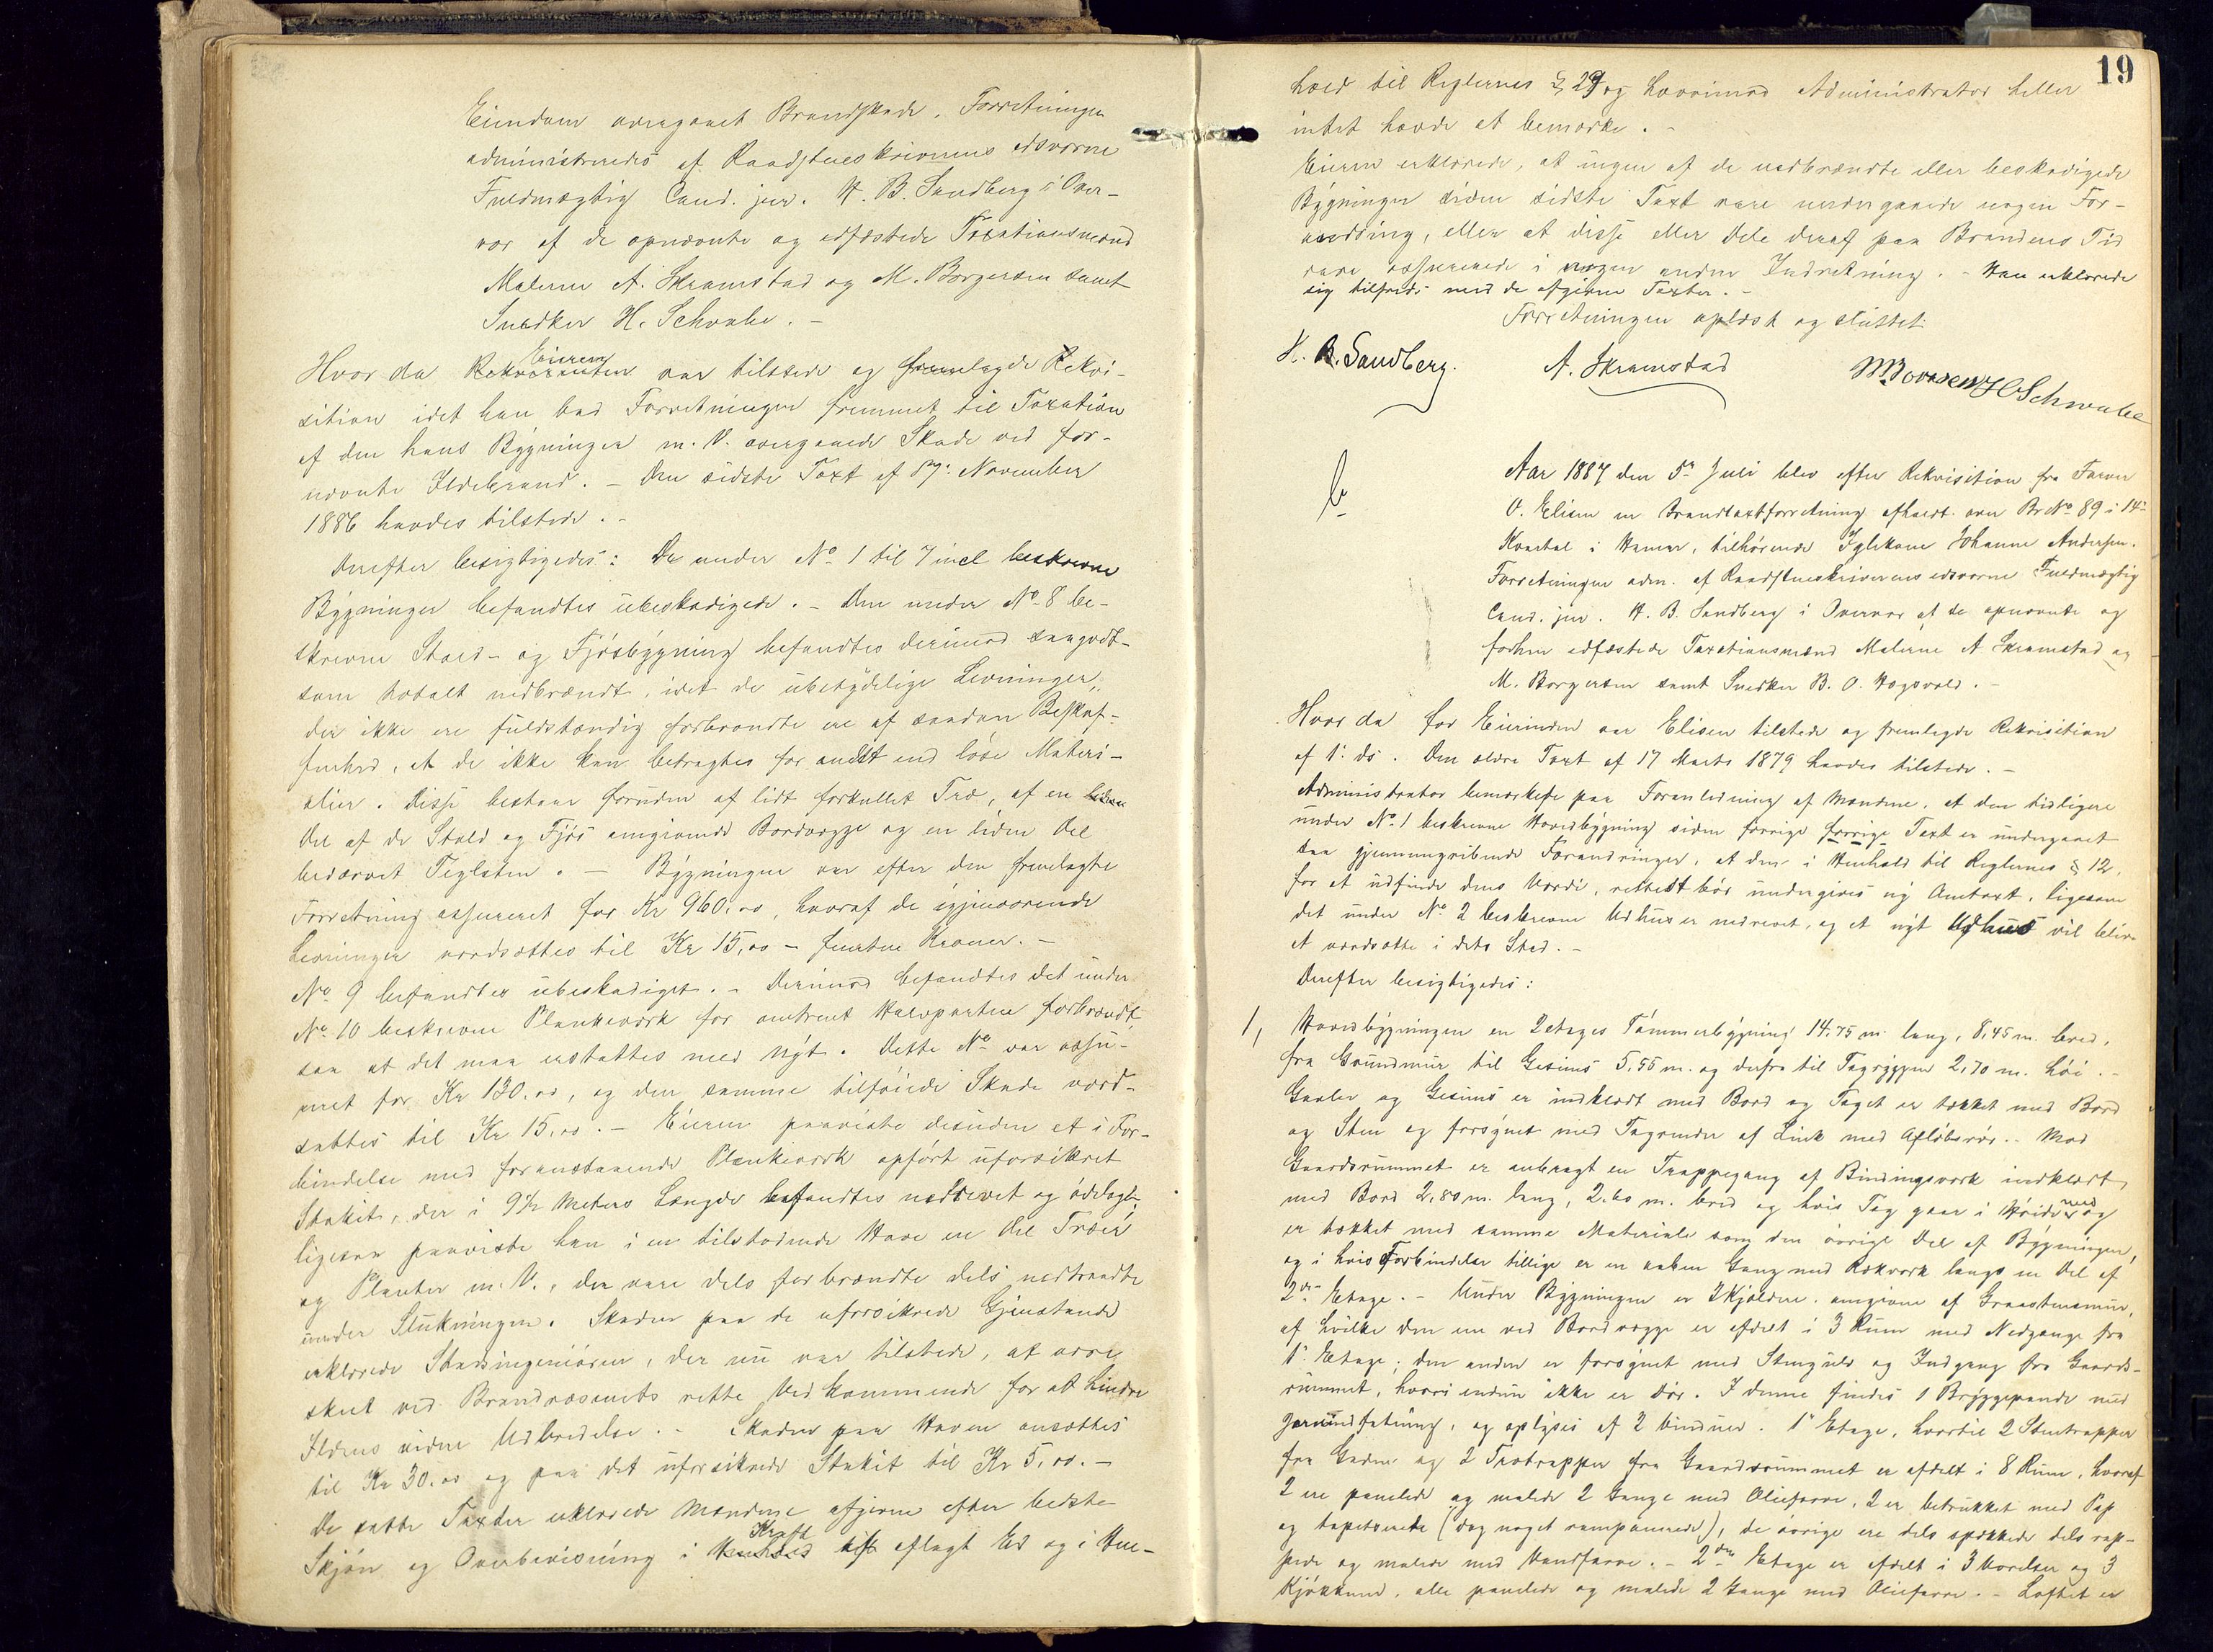 Eiendom overgaaet Brandskade. Forretningen
administreredes af Raadstueskriverens edsvorne
Fuldmægtig Cand. jur. H. B. Sandberg i Over-
vær af de opnævnte og edfæstede Taxationsmænd
Malerne A. Skramstad og M. Borgersen samt
Snedker H. Schwabe. –
Hvor da Eieren var tilstede og fremlagde Rekvi-
sition idet han bad Forretningen fremmet til Taxation
af den hans Bygninger m. V. overgaaede Skade ved for-
nævnte Ildebrand. – Den sidste Taxt af November
1886 havdes tilstede. –
Derefter besigtigedes: De under No 1 til 7 incl beskrevne
Bygninger befandtes ubeskadigede. – Den under No 8 be-
skrevne Stald- og Fjøsbygning befandtes derimod saagodt-
som totalt nedbrændt, idet de ubetydelige Levninger,
der ikke ere fuldstændig forbrændte ere af saadan Beskaf-
fenhed, at de ikke kan betragtes for andet end løse Materi-
alier. Disse bestaar foruden af lidt forkullet Træ, af en liden
Del af de Stald og Fjøs omgivende Bordvægge og en liden Del
bedærvet Teglsten. – Bygningen var efter den fremlagte
Forretning assureret for Kr 960,00, hvoraf de igjenværende
Levninger værdsættes til Kr 15,00 – femten Kroner. –
No 9 befandtes ubeskadiget. – Derimod befandtes det under
No 10 beskrevne Plankeværk for omtrent Halvparten forbrændt,
saa at det maa erstattes med nyt. Dette No var assu-
reret for Kr 130.00, og den samme tilføiede Skade værd-
sattes til Kr 15,00. – Eieren paaviste desuden et i For-
bindelse med foranstaaende Plankeværk opført uforsikret
Stakit, der i 9½ Meters Længde befandtes nedrevet og ødelagt,
ligesom paaviste han i en tilstødende Have en Del Træer
og Planter m. V., der vare dels forbrændte dels nedtraadte
under Slukningen. Skaden paa de uforsikrede Gjenstande
erklærede Stadsingeniøren, der nu var tilstede, at være
skeet ved Brandvæsenets rette Vedkommende for at hindre
Ildens videre Udbredelse. – Skaden paa Haven ansættes
til Kr 30.00 og paa det uforsikrede Stakit til Kr 5,00. –
De satte Taxter erklærede Mændene afgivne efter bedste
Skjøn og Overbevisning i Kraft aflagt Ed og i Hen-
19
hold til Reglernes § 29 og hvorimod Administrator heller
intet havde at bemærke. –
Eieren erklærede, at ingen af de nedbrændte eller beskadigede
Bygninger siden sidste Taxt vare undergaaede nogen For-
andring, eller at disse eller Dele deraf paa Brandens Tid
vare assurerede i nogen anden Indretning. – Han erklærede
sig tilfreds med de afgivne Taxter. –
Forretningen oplæst og sluttet
H. B. Sandberg. A. Skramstad M Borgersen H Schwabe
Aar 1887 den 5te Juli blev efter Rekvisition fra Farver
O. Elisen en Brandtaxtforretning afholdt over Br No 89 i 14de
Kvartal i Hamar, tilhørende Johanne Andersen.
Forretningen adm. af Raadstueskriverens edsvorne Fuldmægtig
Cand. jur. H. B. Sandberg i Overvær af de opnævnte og
forhen edfæstede Taxationsmænd Malerne A Skramstad og
M. Borgersen samt Snedker B. O. Hogsvold. –
Hvor da for Eierinden var Elisen tilstede og fremlagde Rekvisition
af 1. ds. Den ældre Taxt af 17 Marts 1879 havdes tilstede. –
Administrator bemærkede paa Foranledning af Mændene, at den tidligere
under No 1 beskrevne Hovedbygning siden forrige forrige Taxt er undergaaet
saa gjennemgribende Forandringer, at den i Henhold til Reglernes § 12,
for at udfinde dens Værdi, rettest bør undergives ny Omtaxt, ligesom
det under No 2 beskrevne Udhus er nedrevet, og et nyt Udhus vil blive
at værdsætte i dets Sted. –
Derefter besigtigedes:
1, Hovedbygningen en 2 etages Tømmerbygning 14.75 m. lang, 8,45 m. bred,
fra Grundmur til Gesims 5,55 m. og derfra til Tagryggen 2,70 m. høi. –
Gavler og Gesims er indklædt med Bord og Taget er tækket med Bord
og Sten og forsynet med Tagrender af Zink med Afløbsrør. – Mod
Gaardsrummet er anbragt en Trappegang af Bindingsværk indklædt
med Bord 2,80 m. lang, 2.60 m. bred og hvis Tag gaar i Høide med og
er tækket med samme Materiale som den øvrige Del af Bygningen,
og i hvis Forbindelse tillige er en aaben Gang med Rækværk langs en Del af
2den Etage. – Under Bygningen er 2 Kjældere omgivne af Graastensmur,
af hvilke den ene ved Bordvægge er afdelt i 3 Rum med Nedgange fra
1ste Etage; den anden er forsynet med Stengulv og Indgang fra Gaards-
rummet, hvori endnu ikke er Dør. I denne findes 1 Bryggepande med
Jernindfatning, og oplyses af 2 Vinduer. 1ste Etage, hvortil 2 Stentrapper
fra Gaden og 2 Trætrapper fra Gaardsrummet er afdelt i 8 Rum, hvoraf
2 ere panelede og malede 2 Gange med Oliefarve, 2 er betrukket med Pap
og tapetserede (dog noget ramponerede), de øvrige ere dels spækkede dels rap-
pede og malede med Vandfarve. – 2den Etage er afdelt i 3 Værelser og 3
Kjøkkener, alle panelede og malede 2 Gange med Oliefarve. – Loftet er